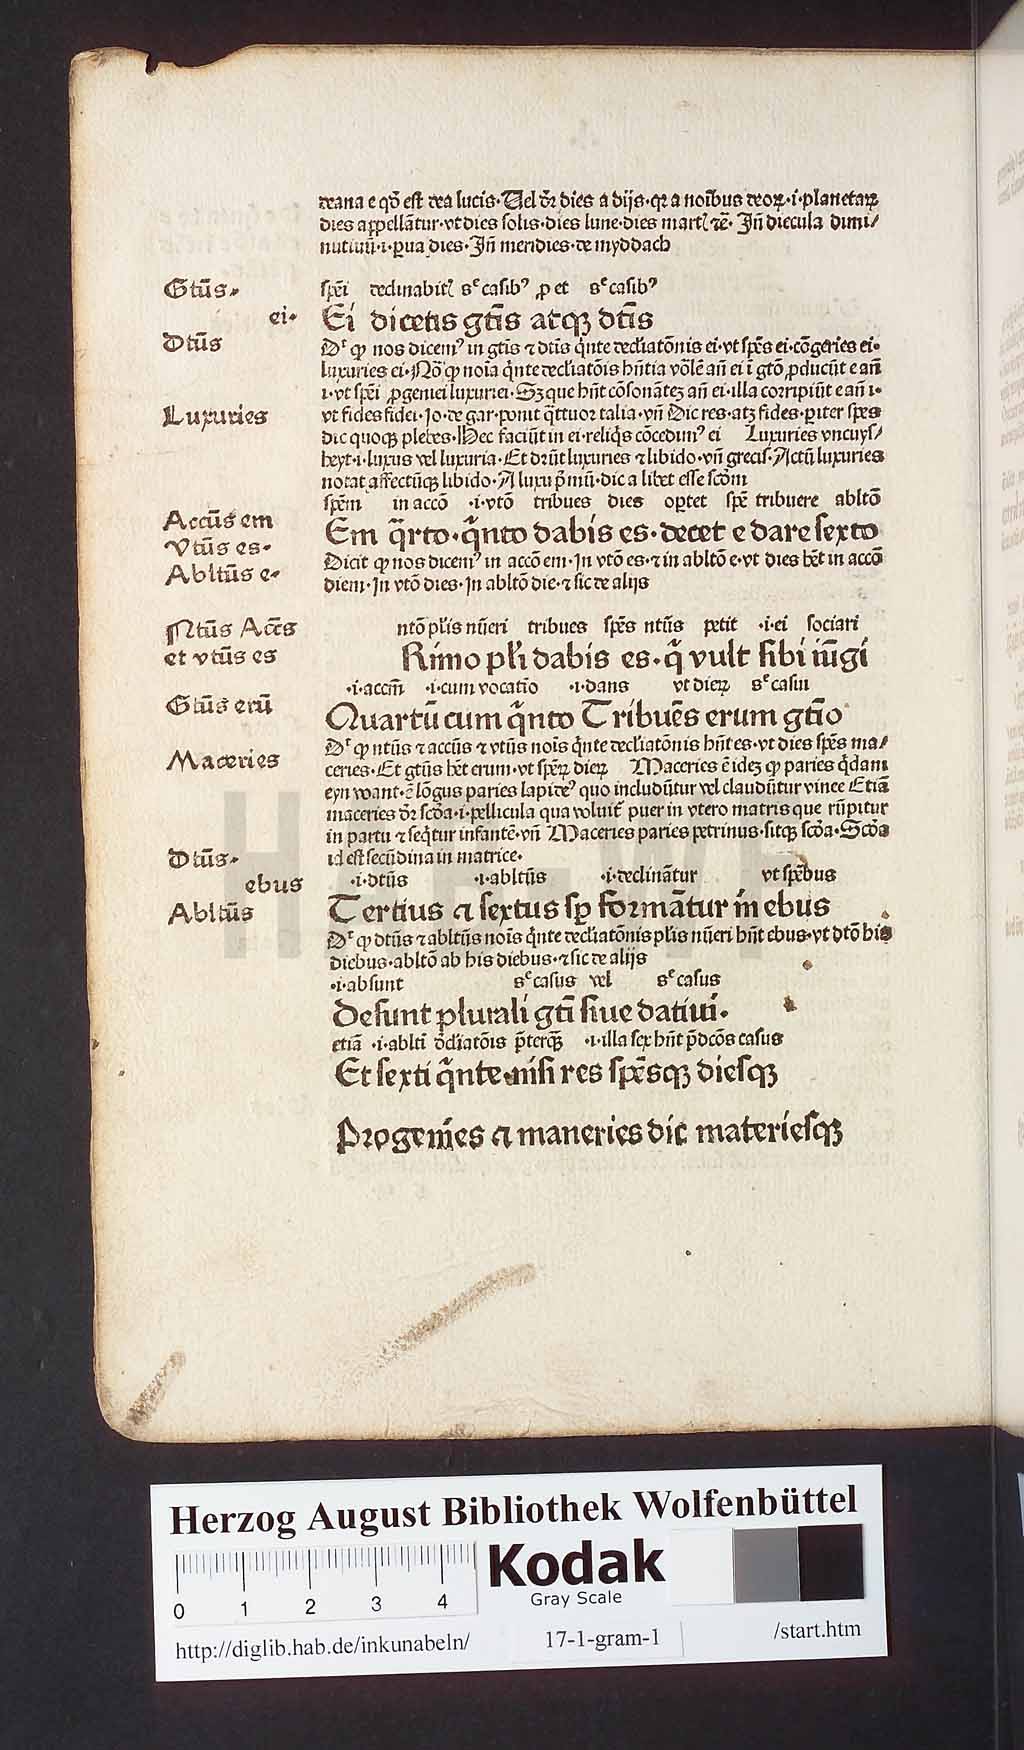 deana e qd̄ est dea lucis· Uel dr̄ dies a dijs· qr a noībus deoꝝ ·i· planetaꝝ
dies appellātur· vt dies solis· dies lune· dies martꝭ ⁊c̄· Jn̄ diecula dimi/
nutiuū ·i· ꝑua dies· Jn̄ meridies· de myddach
Gtūs· spēi declinabitꝭ sᶜ casibꝰ ꝓ et sᶜ casibꝰ
ei· Ei dicetis gtīs atqꝫ dtīs
Dtūs Dᶜ ꝙ nos dicemꝰ in gtīs ⁊ dtīs q̄nte declīatōnis ei· vt spēs ei· cōgeries ei·
luxuries ei· Nō ꝙ noīa q̄nte declīatōis hn̄tia vōlē an̄ ei ī gtō ꝓducūt e an̄
i· vt spēi ꝓgeniei luxuriei· Sꝫ que hn̄t cōsonāteꝫ an̄ ei· illa corripiūt e an̄ i·
Luxuries vt fides fidei· Jo· de gar· ponit q̄ttuor talia· vn̄ Dic res· atꝫ fides· ꝑiter spes
dic quoqꝫ plebes· Hec faciūt in ei· reliq̄s cōcedimꝰ ei Luxuries vncuys/
heyt ·i· luxus vel luxuria· Et dn̄t luxuries ⁊ libido· vn̄ grecis· Actū luxuries
notat affectūqꝫ libido· A luxu pͥmū· dic a libet esse scd̄m
spēm in accō ·i· vtō tribues dies oꝑtet spē tribuere abltō
Accūs em Em q̄rto· q̄nto dabis es· decet e dare sexto
Vtūs es· Dicit ꝙ nos dicemꝰ in accō em· Jn vtō es· ⁊ in abltō e· vt dies hēt in accō
Abltūs e· diem· Jn vtō dies· Jn abltō die· ⁊ sic de alijs
Ntūs Accēs ntō pl̄is nūeri tribues spēs ntūs petit ·i· ei sociari
et vtūs es Rimo pl̄i dabis es· q̄ vult sibi iūgi
·i· accm̄ ·i· cum vocatīo ·i· dans vt dieꝝ sᶜ casui
Gtūs erū Quartū cum q̄nto Tribuēs erum gtīo
Dᶜ ꝙ ntūs ⁊ accūs ⁊ vtūs noīs q̄nte declīatōnis hn̄t es· vt dies spēs ma/
Maceries ceries· Et gtūs hēt erum· vt spēꝝ dieꝝ Maceries ē ideꝫ ꝙ paries q̄dam
eyn want· ē lōgus paries lapideꝰ quo includūtur vel claudūtur vinee Etiā
maceries dr̄ scd̄a ·i· pellicula qua voluit̄ puer in vtero matris que rūpitur
in partu ⁊ seq̄tur infantē· vn̄ Maceries paries petrinus· sitqꝫ scd̄a· Scd̄a
id est secūdina in matrice·
Dtūs· ·i· dtūs ·i· abltūs ·i· declinātur vt spēbus
ebus
Abltūs Tertius ⁊ sextus sꝑ formātur in ebus
Dᶜ ꝙ dtūs ⁊ abltūs noīs q̄nte declīatōnis pl̄is nūeri hn̄t ebus· vt dtō his
diebus· abltō ab his diebus· ⁊ sic de alijs
·i· absunt sᶜ casus vel sᶜ casus
Desunt plurali gtī siue datiui·
etiā ·i· abltī d̄clīatōis p̄terqꝫ ·i· illa sex hn̄t p̄dcōs casus
Et sexti q̄nte· nisi res spēsqꝫ diesqꝫ
Progenies ⁊ maneries dic materiesqꝫ
Herzog August Bibliothek Wolfenbüttel
0 1 2 3 4
Kodak
Gray Scale
http://diglib.hab.de/inkunabeln/ 17-1-gram-1 /start.htm